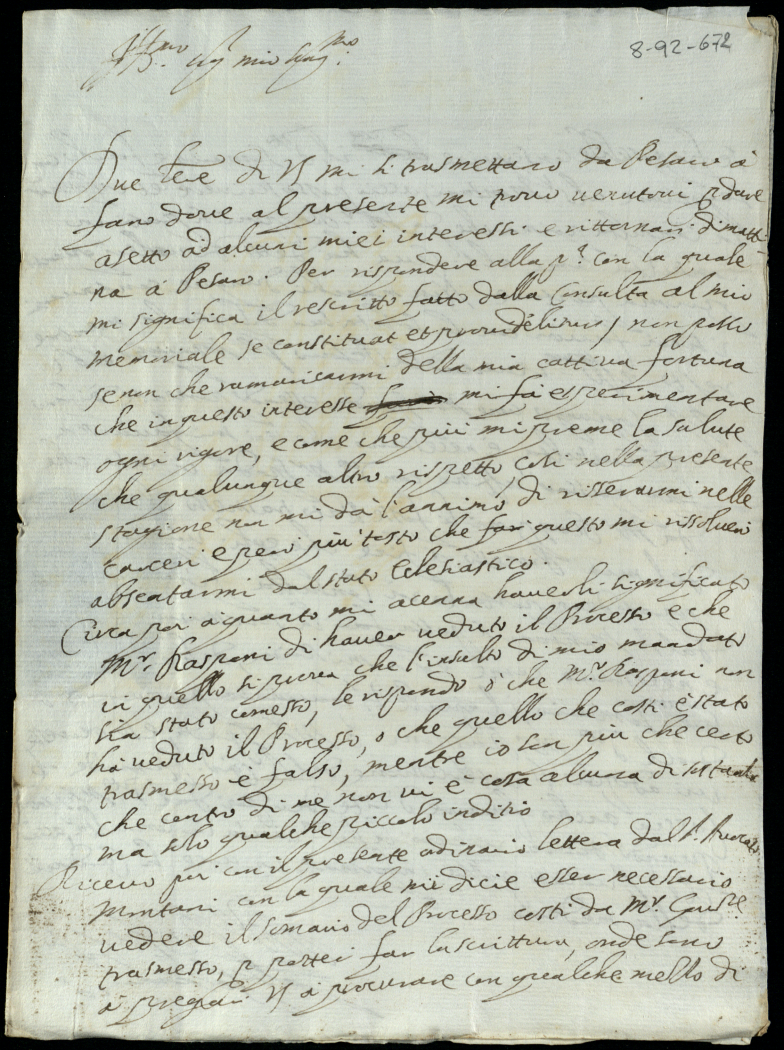 Ill.mo Sig.r mio Sig.mo
8-92-672
Due l'ere di VS mi si trasmettano da Pesaro à
fano doue al presente mi trouo uenutoui p dare
asetto ad alcuni miei interessi e rittornarò dimatti
na à Pesaro. Per rispondere alla p.a con la quale
mi significa il rescritto fatto dalla Consulta al mio
memoriale se constituat et prouidebitur, non posso
se non che ramaricarmi della mia cattiua fortuna
che in questo interesse mi fà esperimentare
ogni rigore, e come che più mi preme la salute
che qualunque altro rispetto, così nella presente
stagione non mi dà l'annimo di risserarmi nelle
carceri e però più tosto che far questo mi rissoluerò
absentarmi dal stato Eclesiastico.
Circa poi a quanto mi acenna hauerli significato
Mr. Rasponi di hauer ueduto il Processo e che
in quello si proua che l'insulto di mio mandato
sia stato comesso, le rispondo ò che Mr. Rasponi non
hà ueduto il Processo, o che quello che costì è stato
trasmesso è falso, mentre io son più che certo
che contro di me non ui è cosa alcuna di sostanza
ma solo qualche piccolo inditio
Riceuo poi con il presente ordinario lettera dal S.
Montani con la quale mi dicie esser necessario
uedere il somario del Processo costì da Mr.
trasmesso, p poter far la scrittura, onde sono
à pregar VS à procurare con qualche mezzo di